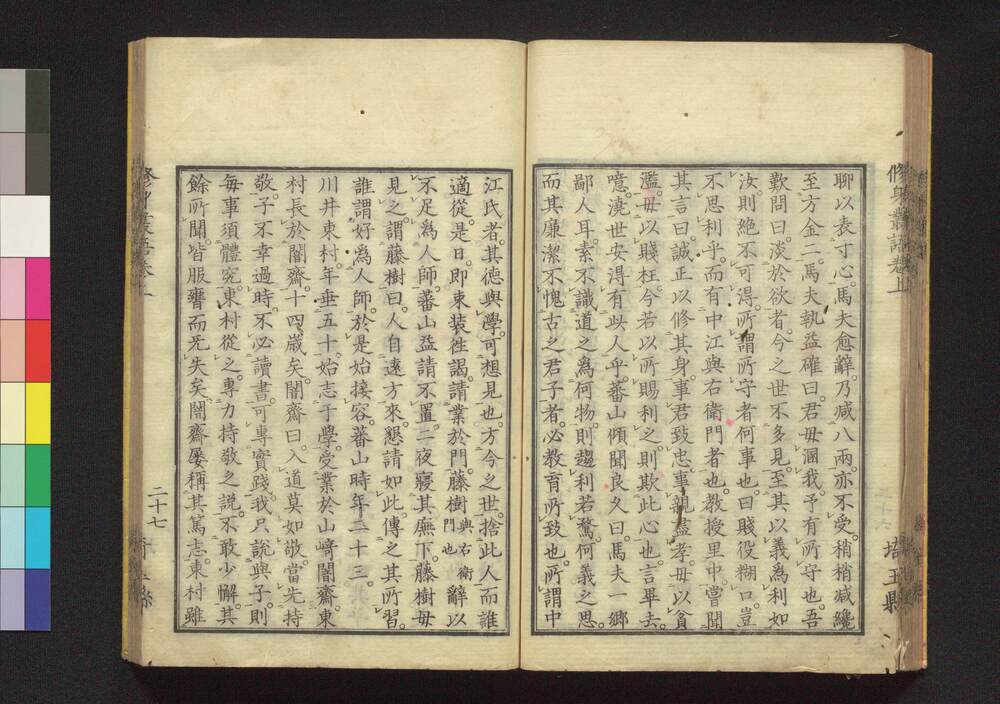 修身叢語卷上
埼玉縣
聊以表寸心。馬夫愈辭。乃減八兩。亦不受。稍稍減。纔
至方金二。馬夫執益確曰。君毋溷我。予有所守也。吾
歎問曰。淡於欲者。今之世不多見。至其以義爲利如
汝。則絶不可得。所謂所守者何事也。曰賤役糊口。豈
不思利乎。而有中江與右衛門者也。教授里中。嘗聞
其言曰。誠正以修其身。事君致忠。事親盡孝。毋以貪
濫。毋以賤枉。今若以所賜利之。則欺此心也。言畢去。
噫。澆世安得有此人乎。蕃山傾聞良久曰。馬夫一鄉
鄙人耳。素不識道之爲何物。則趨利若鶩。何義之思。
而其廉潔不愧古之君子者。必教育所致也。所謂中
江氏者。其德與學。可想見也。方今之世。捨此人而誰
適從。是日。即束裝徃謁。請業於門。藤樹 與右衛門也 辭以
不足爲人師。蕃山益請不置。二夜寢其廡下。藤樹母
見之。謂藤樹曰。人自遠方來。懇請如此。傳之其所習。
誰謂好爲人師。於是始接容。蕃山時年二十三。
川井東村。年垂五十。始志于學。受業於山﨑闇齋。東
村長於闇齋。十四歲矣。闇齋曰。入道莫如敬。當先持
敬。子不幸過時。不必讀書。可專實踐。我只說與子。則
每事須體究。東村從之。專力持敬之說。不敢少懈。其
餘所聞。皆服膺而無失矣。闇齋屢稱其篤志。東村雖
修身叢語卷上
二十七